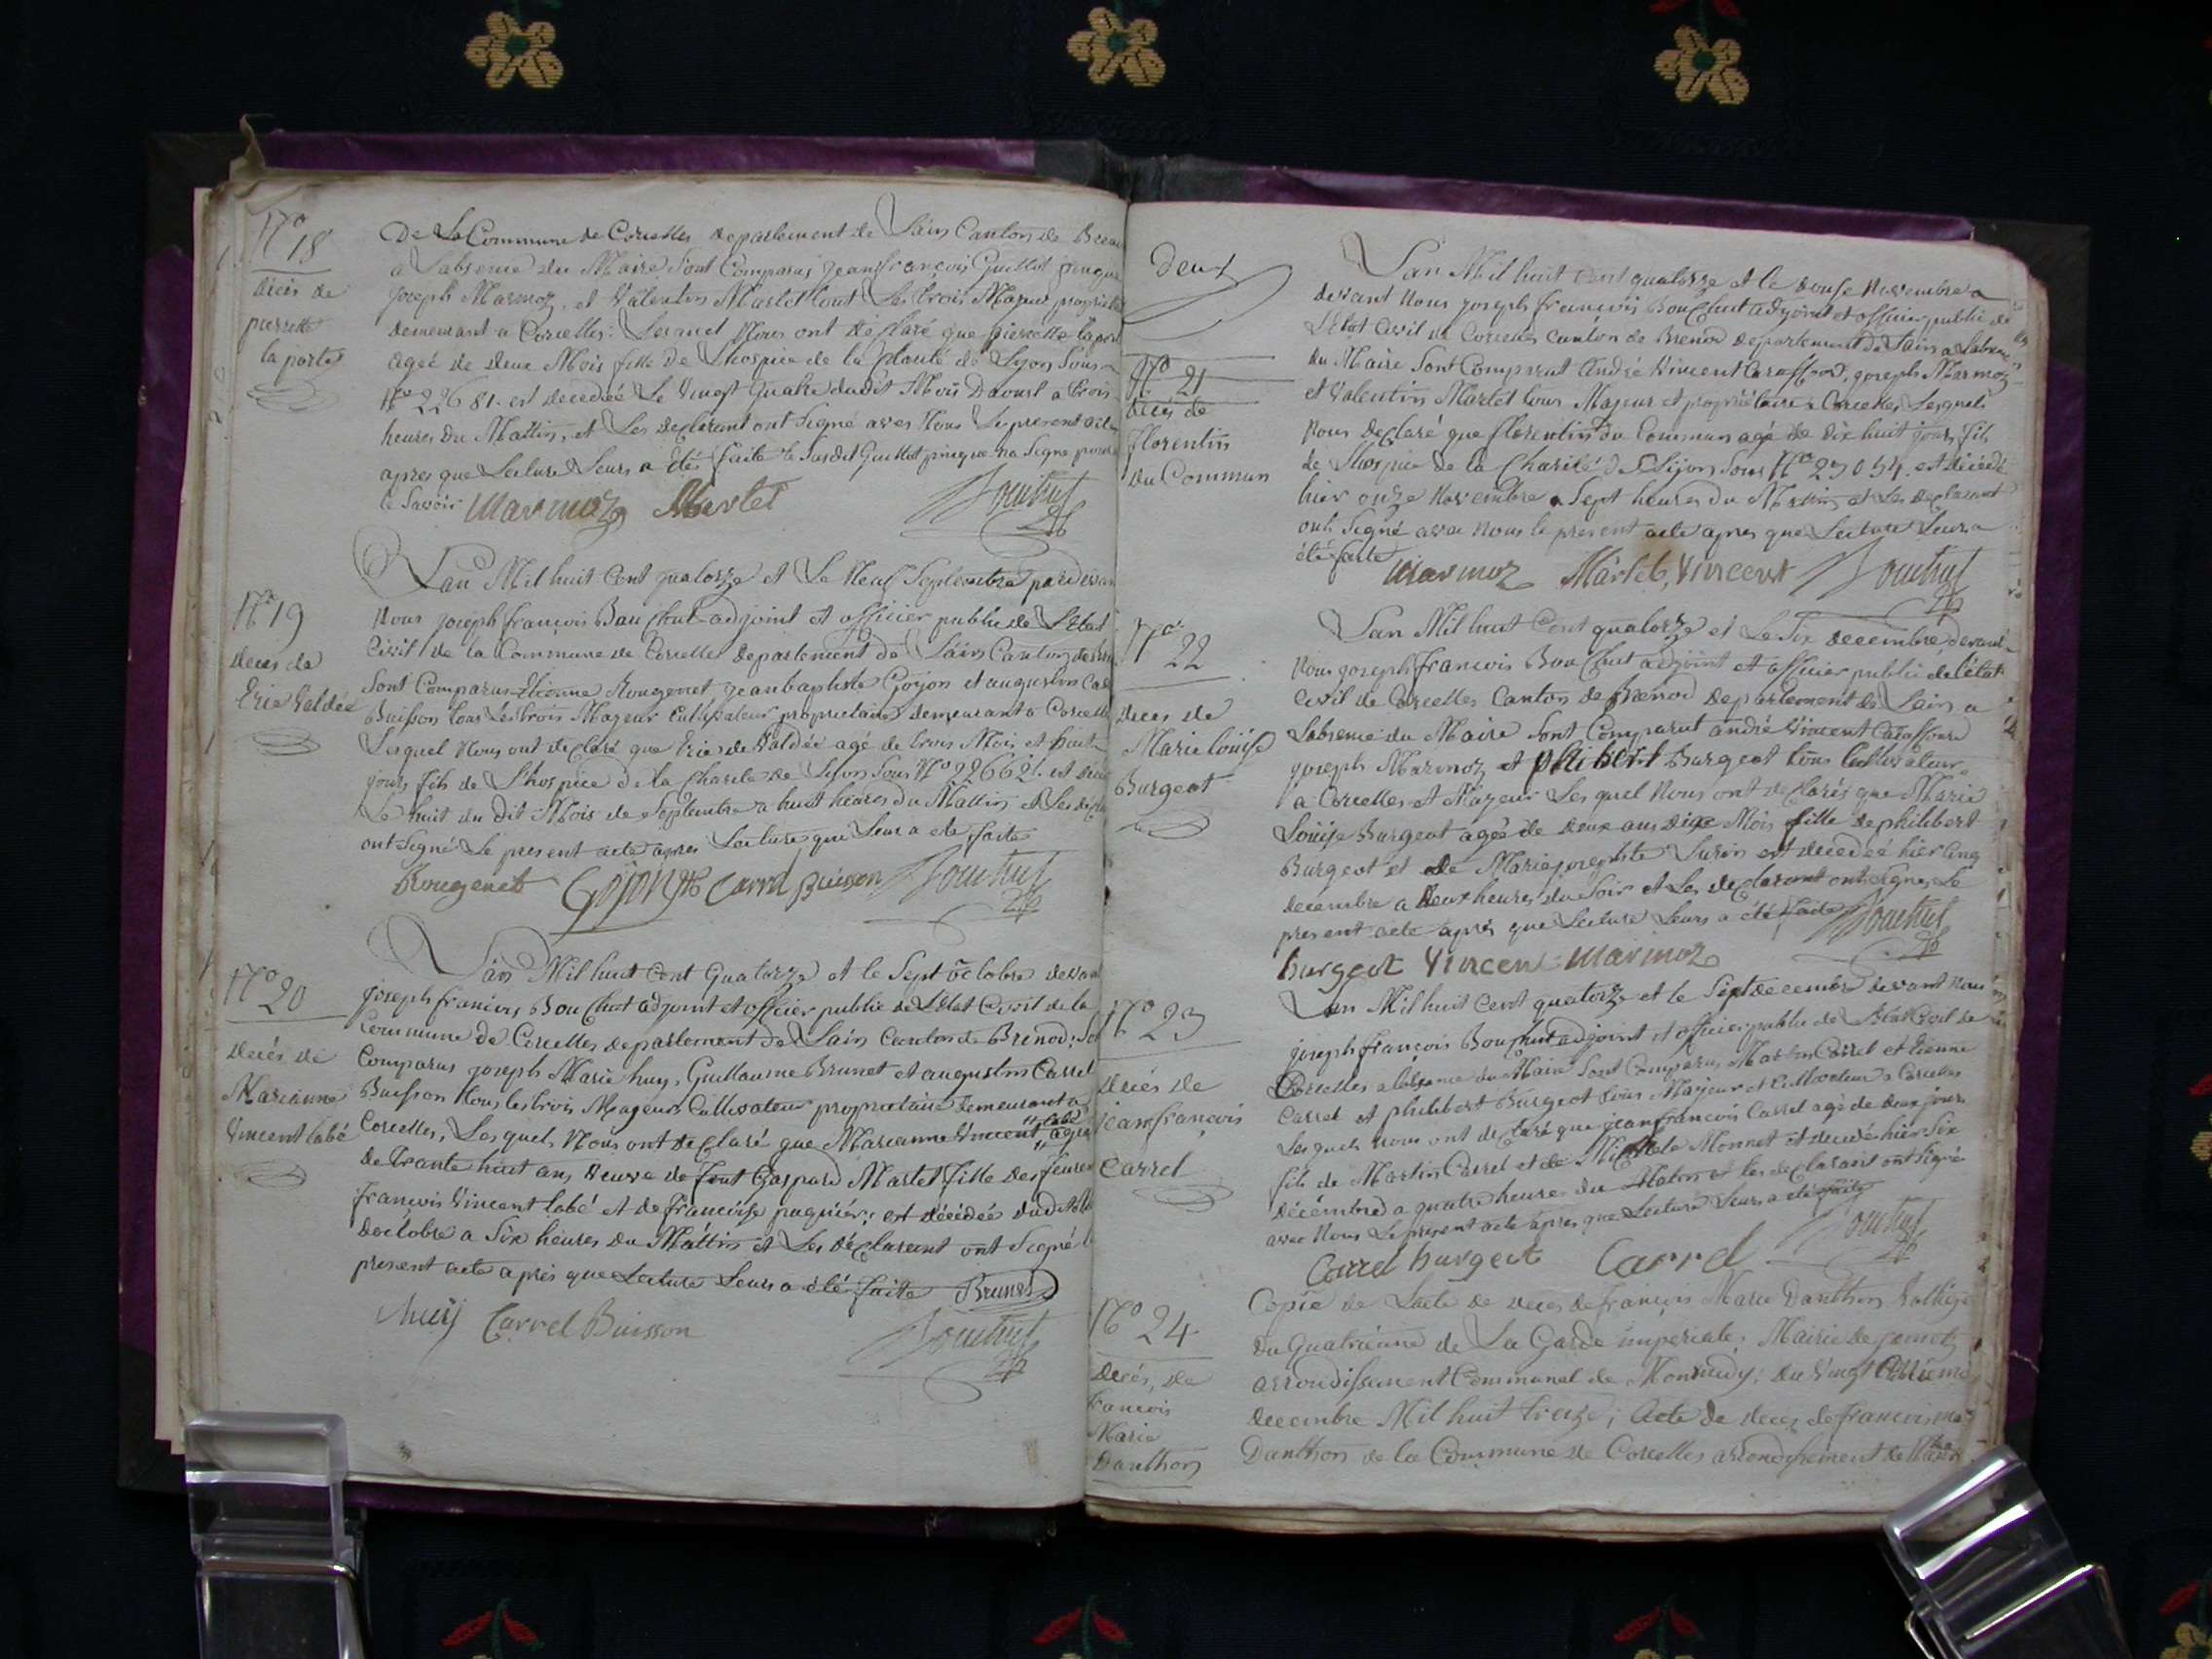 N° 18
décès de
pierrette
la porte
De La Commune de Corcelles departement de Lain Canton de
a Labsence du Maire Sont Comparus jean françois Guillot pinque
joseph Marmoz, et Valentin Martel tout Les trois Majeur
demeurant a Corcelles: Lesquel Nous ont déclaré que pierrette
ageé de deux Mois fille de Lhospice de la de Lyon Sous
N° 22681. est decedeé Le Vingt quatre dudit Mois Daoust a trois
heures du Mattin, et Les declarant ont Signé avec Nous Le present acte
apres que Lecture Leurs a été faite le Susdit Guillot pinque na Signé pour
le Savoir Marmoz Martel Bouchut
N° 19
deces de
Eric Valdéé
Lan Mil huit Cent quatorze et Le Neuf Septembre pardevan
Nous joseph françois Bouchut adjoint et officier public de L'Etat
Civil de la Commune de Corcelles departement de Lain Canton de
Sont Comparus Etienne Rougenet jean baptiste Goyon et augustin
Buisson tous Les trois Majeur Cultivateur proprietaire demeurant a Corcelle
Lesquel Nous ont declaré que Eric de Valdéé agé de trois Mois et huit
jours fils de L'hospice de la Charite de Lyon Sous N° 22662. est
Le huit du dit Mois de Septembre a huit heures du Mattin et Les
ont Signé Le present acte apres Lecture que Leur a ete faite
Rougenet Goyon Carrel Buisson Bouchut
N° 20
decés de
Marianne
Vincent labé
Lan Mil huit Cent Quatorze et le Sept octobre
joseph francois Bouchut adjoint et officier public de L'Etat Civil de la
Commune de Corcelles departement de Lain Canton de Brenod;
Comparus joseph Marie huy, Guillaume Brunet et augustin Carrel
Buisson tous les trois Mageur Cultivateur proprietaire demeurant a
Corcelles, Lesquels Nous ont declaré que Marianne Vincent labé
de trante huit ans, veuve de feut Gaspard Martel fille de
francois Vincent labé et de francoise paguier; est décédée dudit
doctobre a Six heures du Mattin et Les déclarant ont Signé
present acte après que Lecture Leurs a été faite Brunet
huij Carrel Buisson Bouchut
deux
N° 21
décès de
florentin
du Commun
Lan Mil huit Cent quatorze et le douse Novembre a
devant Nous joseph francois Bouchut adjoint et officier public de
L'Etat Civil de Corcelles canton de Brenod departement de Lain a Labsence
du Maire Sont Comparut André Vincent, joseph Marmoz
et Valentin Martel tous Majeur et propriétaire a Corcelles Lesquels
Nous declaré que florentin du Commun agé de dix huit jours fils
de Lhospice de la Charité de Lyon Sous N° 23054. est décédé
hier onze Novembre a Sept heures du Mattin et Les declarant
ont Signé avec Nous le present acte apres que Lecture Leurs a
été faite Marmoz Martel Vincent Bouchut
N° 22
deces de
Marie loüise
Burgeot
Lan Mil huit Cent quatorze et Le Six decembre devant
Nous joseph francois Bouchut adjoint et officier public de l'état
Civil de Corcelles Canton de Brenod departement de Lain a
Labsence du Maire Sont Comparut andré Vincent
joseph Marmoz et philibert Burgeot tous Cultivateur
a Corcelles et Mageur Lesquel Nous ont declarés que Marie
Loüise Burgeot agée de deux ans dix Mois fille de philibert
Burgeot et de Marie est decedeé hier Cinq
decembre a deux heures du Soir et Les declarant ont Signés Le
present acte après que Lecture Leurs a été faite Bouchut
Burgeot Vincent Marmoz
N° 23
decés de
jean françois
Carrel
Lan Mil huit Cent quatorze et le Sept decembre devant nous
joseph françois Bouchut adjoint et officier public de L'Etat Civil de
Corcelles a labsence du Maire Sont Comparus Martin Carrel et Etienne
Carrel et philibert Burgeot tous Majeur et Cultivateur a Corcelles
Lesquels nous ont declaré que jean francois Carrel agé de deux jours
fils de Martin Carrel et de Michele Monnet et decedé hier Six
décembre a quatre heure du Matin et les declarant ont Signé
avec Nous Le present acte apres que Lecture Leurs a été faite
Carrel burgeot Carrel Bouchut
N° 24
decés, de
francois
Marie
Danthon
Copie de Lacte de deces de françois Marie Danthon
du Quatrieme de La Garde imperiale; Mairie de
arrondissement Communal de Montmedy; du Vingt
decembre Mil huit treize; Acte de deces de francois
Danthon de la Commune de Corcelles arrondissement de